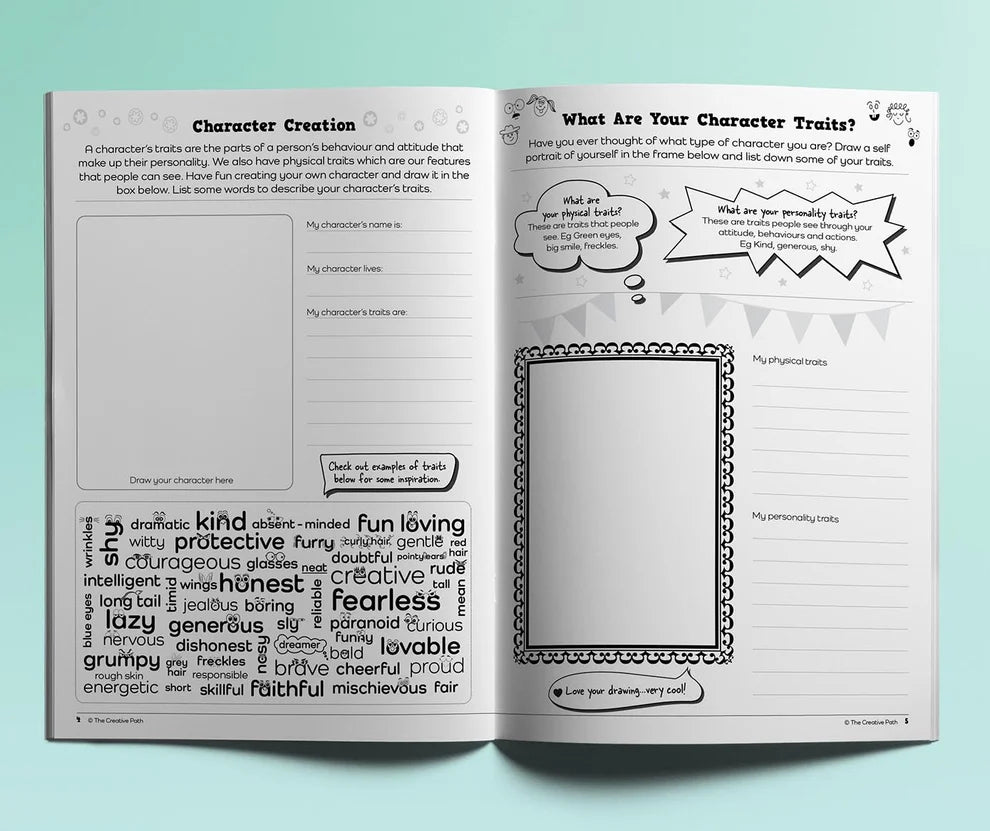 Character Creation
A character's traits are the parts of a person's behaviour and attitude that
make up their personality. We also have physical traits which are our features
that people can see. Have fun creating your own character and draw it in the
box below. List some words to describe your character's traits.
My character's name is:
My character lives:
My character's traits are:
Draw your character here
Check out examples of traits
below for some inspiration.
wrinkles
shy
dramatic kind absent-minded fun loving
witty protective furry curly hair gentle red hair
courageous glasses neat doubtful pointy ears
intelligent timid wings honest creative rude
tall
blue eyes
long tail jealous boring reliable fearless mean
lazy generous sly paranoid curious
nervous dishonest nosy dreamer funny lovable
bald
grumpy grey hair freckles brave cheerful proud
rough skin responsible
energetic short skillful faithful mischievous fair
4 © The Creative Path
What Are Your Character Traits?
Have you ever thought of what type of character you are? Draw a self
portrait of yourself in the frame below and list down some of your traits.
What are
your physical traits?
These are traits that people
see. Eg Green eyes,
big smile, freckles.
What are your personality traits?
These are traits people see through your
attitude, behaviours and actions.
Eg Kind, generous, shy.
My physical traits
My personality traits
Love your drawing...very cool!
© The Creative Path 5